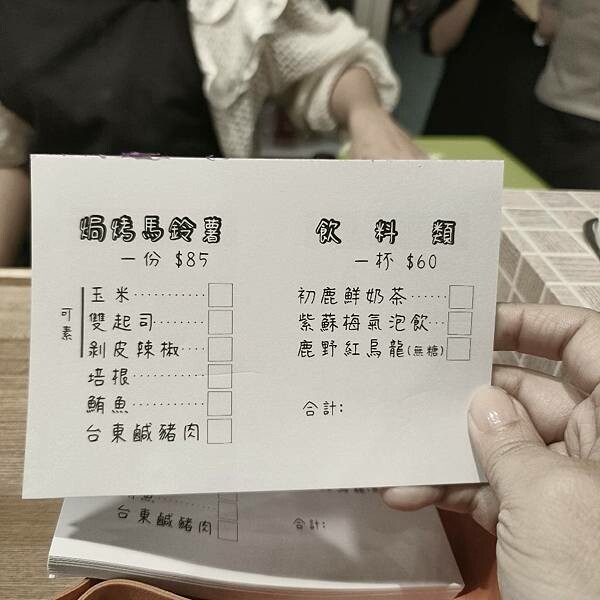 焗烤馬鈴薯
一份 $85
可素
玉米
雙起司
剝皮辣椒
培根
鮪魚
台東鹹豬肉
飲料類
一杯 $60
初鹿鮮奶茶
紫蘇梅氣泡飲
鹿野紅烏龍(無糖)
合計:
台東鹹豬肉
合計: